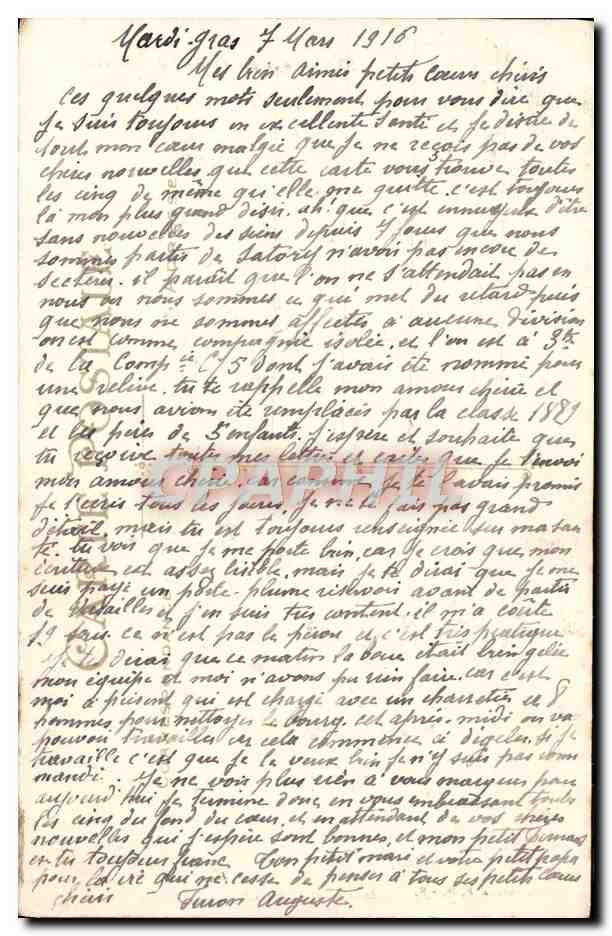 Mardi-gras 7 Mars 1916
Mes bien aimés petits cœurs chéris
Ces quelques mots seulement pour vous dire que
je suis toujours en excellente santé et je désire de
tout mon cœur malgré que je ne reçois pas de vos
chères nouvelles que cette carte vous trouve toutes
les cinq de même qu'elle me quitte. c'est toujours
là mon plus grand désir. ah! que c'est ennuyeux d'être
sans nouvelles des siens depuis 7 jours que nous
sommes partis de Satory n'avoir pas encore de
secteur. il parait que l'on ne s'attendait pas en
nous où nous sommes ce qui met du retard puis
que nous ne sommes affectés à aucune division
on est comme compagnie isolée, et l'on est à
de la Comp ie C/5 dont j'avais été nommé pour
une relève. tu te rappelle mon amour chérie et
que nous avions été remplacés par la classe 1889
et les pères de 5 enfants. j'espère et souhaite que
tu reçoive toutes mes lettres et cartes que je t'envoi
mon amour chérie. car comme je te l'avais promis
je t'écris tous les jours. je ne te fais pas grand
détail mais tu est toujours renseignée sur ma san
té. tu vois que je me porte bien, car je crois que mon
écriture est assez lisible, mais je te dirai que je me
suis payé un porte-plume réservoir avant de partir
de Versailles et j'en suis très content. il m'a coûté
19 sous. ce n'est pas le pérou et c'est très pratique
je te dirai que ce matin la boue était bien gelée
mon équipe et moi n'avons pu rien faire. car c'est
moi à présent qui est chargé avec un charretier et 8
hommes pour nettoyer le bourg. cet après-midi on va
pouvoir travailler car cela commence à dégeler. si je
travaille c'est que je le veux bien je n'y suis pas com
mandé. Je ne vois plus rien à vous marquer pour
aujourd'hui je termine donc en vous embrassant toutes
les cinq du fond du cœur, et en attendant de vos chères
nouvelles qui j'espère sont bonnes, et mon petit
et tu toujours Ton petit mari et votre petit papa
pour la vie qui ne cesse de penser à tous ses petits cœurs
chéris Turon Auguste.
CARTE POSTALE
CPARHIL